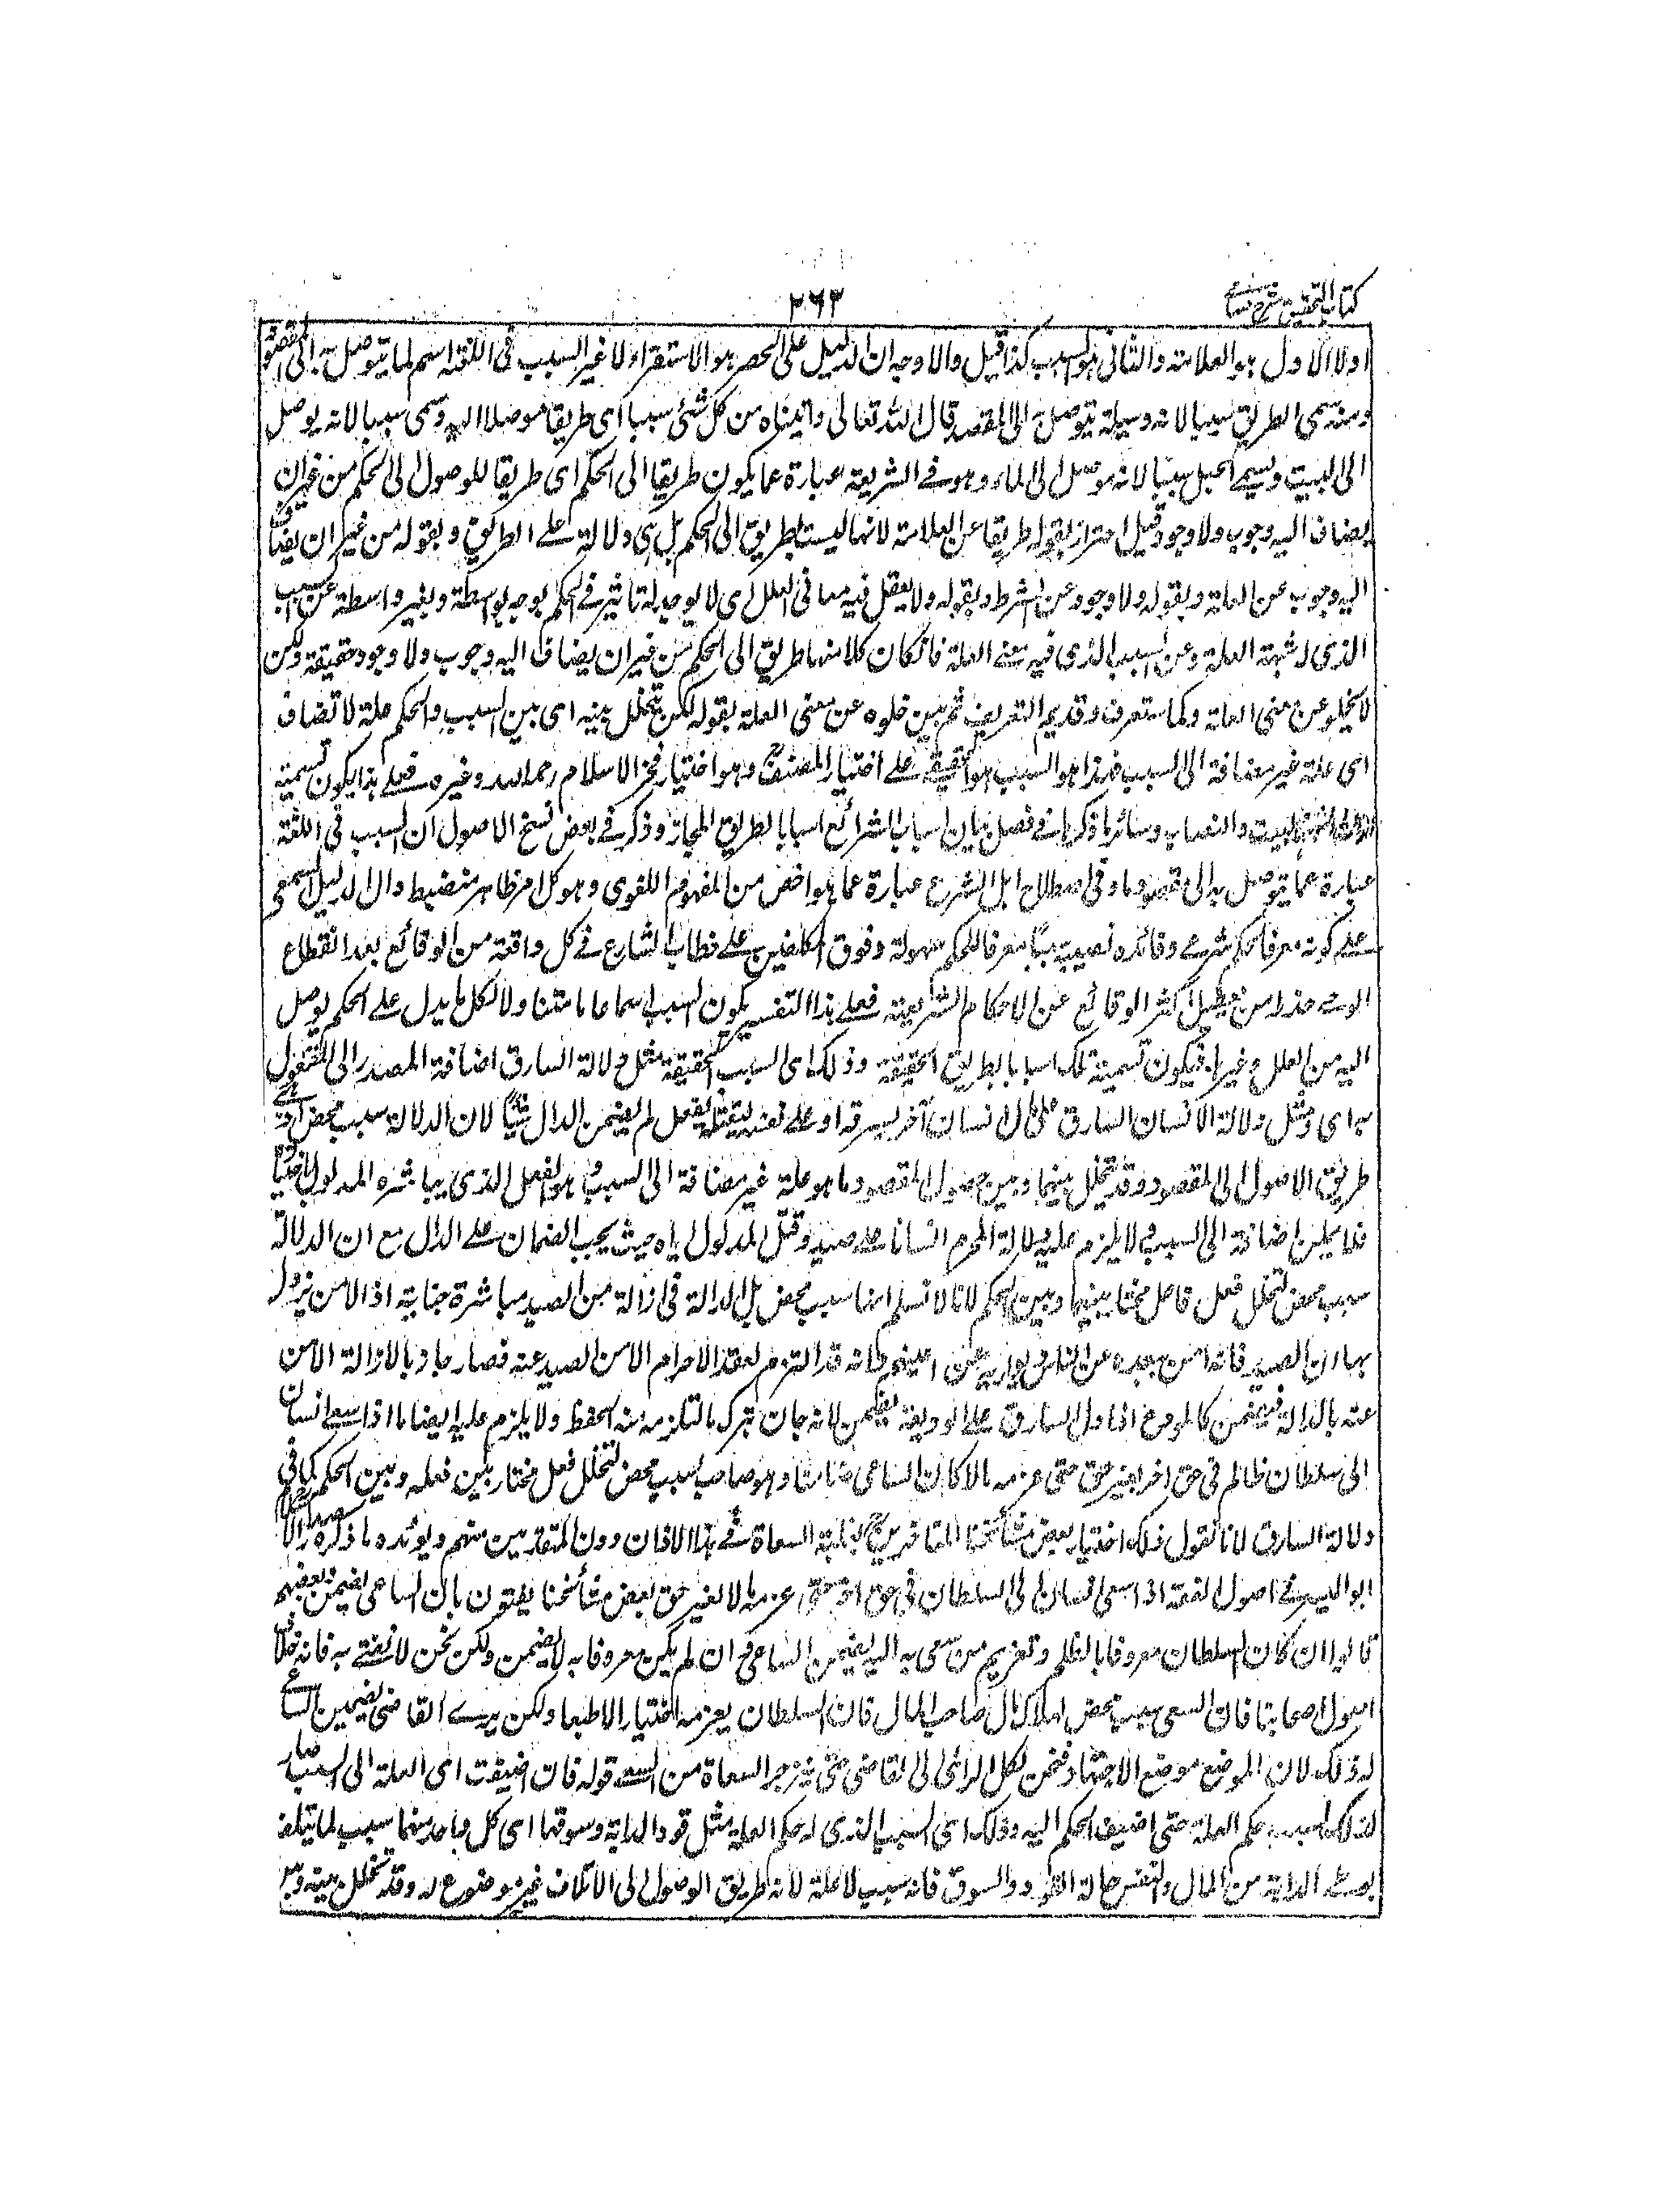 كتاب التحقيق شرح حسامي
٢٦٣
اولا الاول هو العلامة والثاني هو السبب كذا قيل والاوجه ان الدليل على الحصر هو الاستقراء لا غير السبب في اللغة اسم لما يتوصل به الى المقصود
ومنه سمى الطريق سببا لانه وسيلة يتوصل به الى المقصد قال الله تعالى واتيناه من كل شئ سببا اى طريقا موصلا اليه وسمى سببا لانه يوصل
الى البيت ويسمى الحبل سببا لانه موصل الى الماء وهو في الشريعة عبارة عما يكون طريقا الى الحكم اى طريقا للوصول الى الحكم من غير ان
يضاف اليه وجوب ولا وجود قيل احترز بقوله طريقا عن العلامة لانها ليست بطريق الى الحكم بل هى دلالة على الطريق وبقوله من غير ان يضاف
اليه وجوب عن العلة وبقوله ولا وجود عن الشرط وبقوله ولا يعقل فيه معانى العلل اى لا يوجد له تاثير في الحكم بوجه بواسطة وبغير واسطة عن السبب
الذى له شبهة العلة وعن السبب الذى فيه معنى العلة فان كان كلا منهما طريق الى الحكم من غير ان يضاف اليه وجوب ولا وجود حقيقة ولكن
لا يخلو عن معنى العلة وكما ستعرف وقد تم التعريف ثم بين خلوه عن معنى العلة بقوله لكن يتخلل بينه اى بين السبب والحكم علة لا تضاف
اى علة غير مضافة الى السبب فهذا هو السبب هو الحقيقة على اختيار المصنف وهو اختيار فخر الاسلام رحمه الله وغيره فعلى هذا يكون تسمية
البيت والنصاب وسائر ما ذكرنا في فصل بيان اسباب الشرائع اسبابا بطريق المجاز وذكر في بعض نسخ الاصول ان السبب في اللغة
عبارة عما يتوصل به الى مقصود ما وفي اصطلاح اهل الشرع عبارة عما هو اخص من المفهوم اللغوى وهو كل امر ظاهر منضبط دال الدليل السمعى
على كونه معرفا لحكم شرعى وفائدة نصبه سببا معرفا للحكم سهولة وقوف المكلفين على خطاب الشارع في كل واقعة من الوقائع بعد انقطاع
الوحى حذرا من تعطيل اكثر الوقائع عن الاحكام الشرعية فعلى هذا التفسير يكون السبب اسما عاما متناولا لكل ما يدل على الحكم يوصل
اليه من العلل وغيرها فيكون تسمية تلك اسبابا بطريق الحقيقة وذلك اى السبب الحقيقة مثل دلالة السارق اضافة المصدر الى المفعول
به اى ومثل دلالة الانسان السارق على مال انسان آخر ليسرقه او على نفسه ليقتله ففعل لم يضمن الدال شيئا لان الدلالة سبب محض اذ هى
طريق الوصول الى المقصود وقد يتخلل بينها وبين حصول المقصود ما هو علة غير مضافة الى السبب وهو الفعل الذى يباشره المدلول باختياره
فلا يمكن اضافته الى السبب ولا يلزم عليه دلالة المحرم انسانا على صيد وقتل المدلول اياه حيث يجب الضمان على الدال مع ان الدلالة
سبب محض لتخلل فعل فاعل مختار بينها وبين الحكم لانا لا نسلم انها سبب محض بل الدلالة في ازالة امن الصيد مباشرة جناية اذ الامن يزول
بها لان الصيد فانه امن ببعده عن الناس وتواريه عن اعينهم ولانه قد التزم بعقد الاحرام الامن الصيد عنه فصار جانيا بالازالة الامن
عنه بالدلالة فيضمن كالمودع اذا دل السارق على الوديعة يضمن لانه جان بترك ما التزمه منه الحفظ ولا يلزم عليه ايضا ما اذا سعى انسان
الى سلطان ظالم في حق آخر بغير حق حتى غرمه مالا كان الساعى ضامنا وهو صاحب سبب محض لتخلل فعل مختار بين فعله وبين الحكم كما في
دلالة السارق لانا نقول ذلك اختيار بعض مشائخنا المتاخرين لغلبة السعاة في هذا الزمان دون المتقدمين منهم ويؤيده ما ذكره صدر الاسلام
ابو اليسر في اصول الفقه اذا سعى انسان الى السلطان في حق آخر حتى غرمه مالا بغير حق بعض مشائخنا يفتون بان الساعى يضمن بعضهم
قالوا ان كان السلطان معروفا بالظلم وتغريم من سعى به اليه يضمن الساعى وان لم يكن معروفا به لا يضمن ولكن نحن لا نفتى به فانه خلاف
اصول اصحابنا فان السعى سبب محض لهلاك مال صاحب المال فان السلطان يغرمه اختيارا لا طبعا ولكن يرى القاضى تضمين الساعى
له ذلك لان الموضع موضع الاجتهاد فنحن نكل الرائى الى القاضى حتى ينزجر السعاة من السعى قوله فان اضيفت اى العلة الى السبب صار
لذلك السبب حكم العلة حتى اضيف الحكم اليه وذلك اى السبب الذى له حكم العلة مثل قود الدابة وسوقها اى كل واحد منهما سبب لما يتلف
بوطى الدابة من المال والنفس حالة القود والسوق فانه سبب لا علة لانه طريق الوصول الى الاتلاف غير موضوع له وقد تخلل بينه وبين